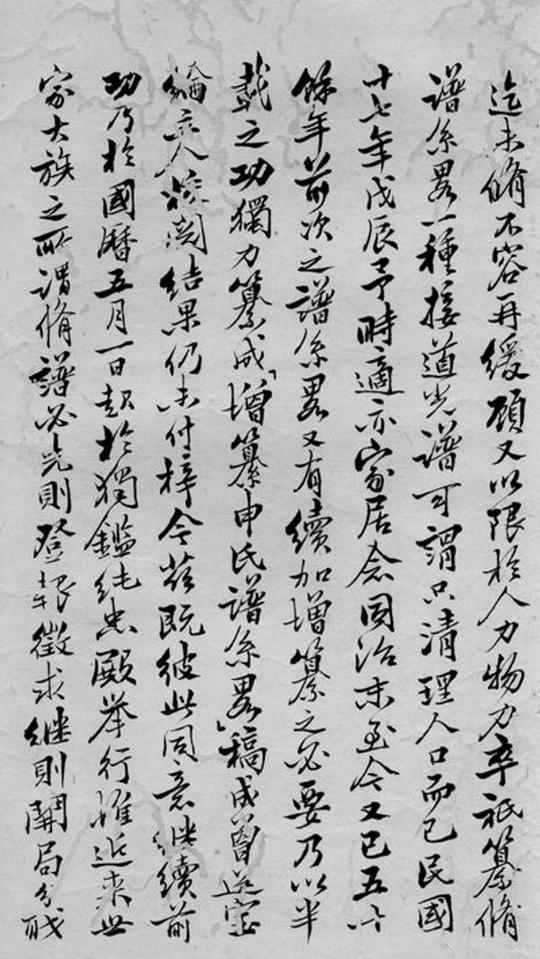 迄未脩不容再緩顧又以限於人力物力卒祇纂脩
譜系畧一種接道光譜可謂只清理人口而已民國
十七年戊辰予時適亦家居念同治末至今又已五六
餘年前次之譜系畧又有續加增纂之必要乃以半
載之功獨力纂成「增纂申氏譜系畧」稿成曾送宝
綸立人校閲結果仍未付梓今茲既彼此同意继續前
功乃於國曆五月一日起於獨鑑純忠殿举行惟近来世
家大族之所謂脩譜必先則登報徵求继則開局分戝